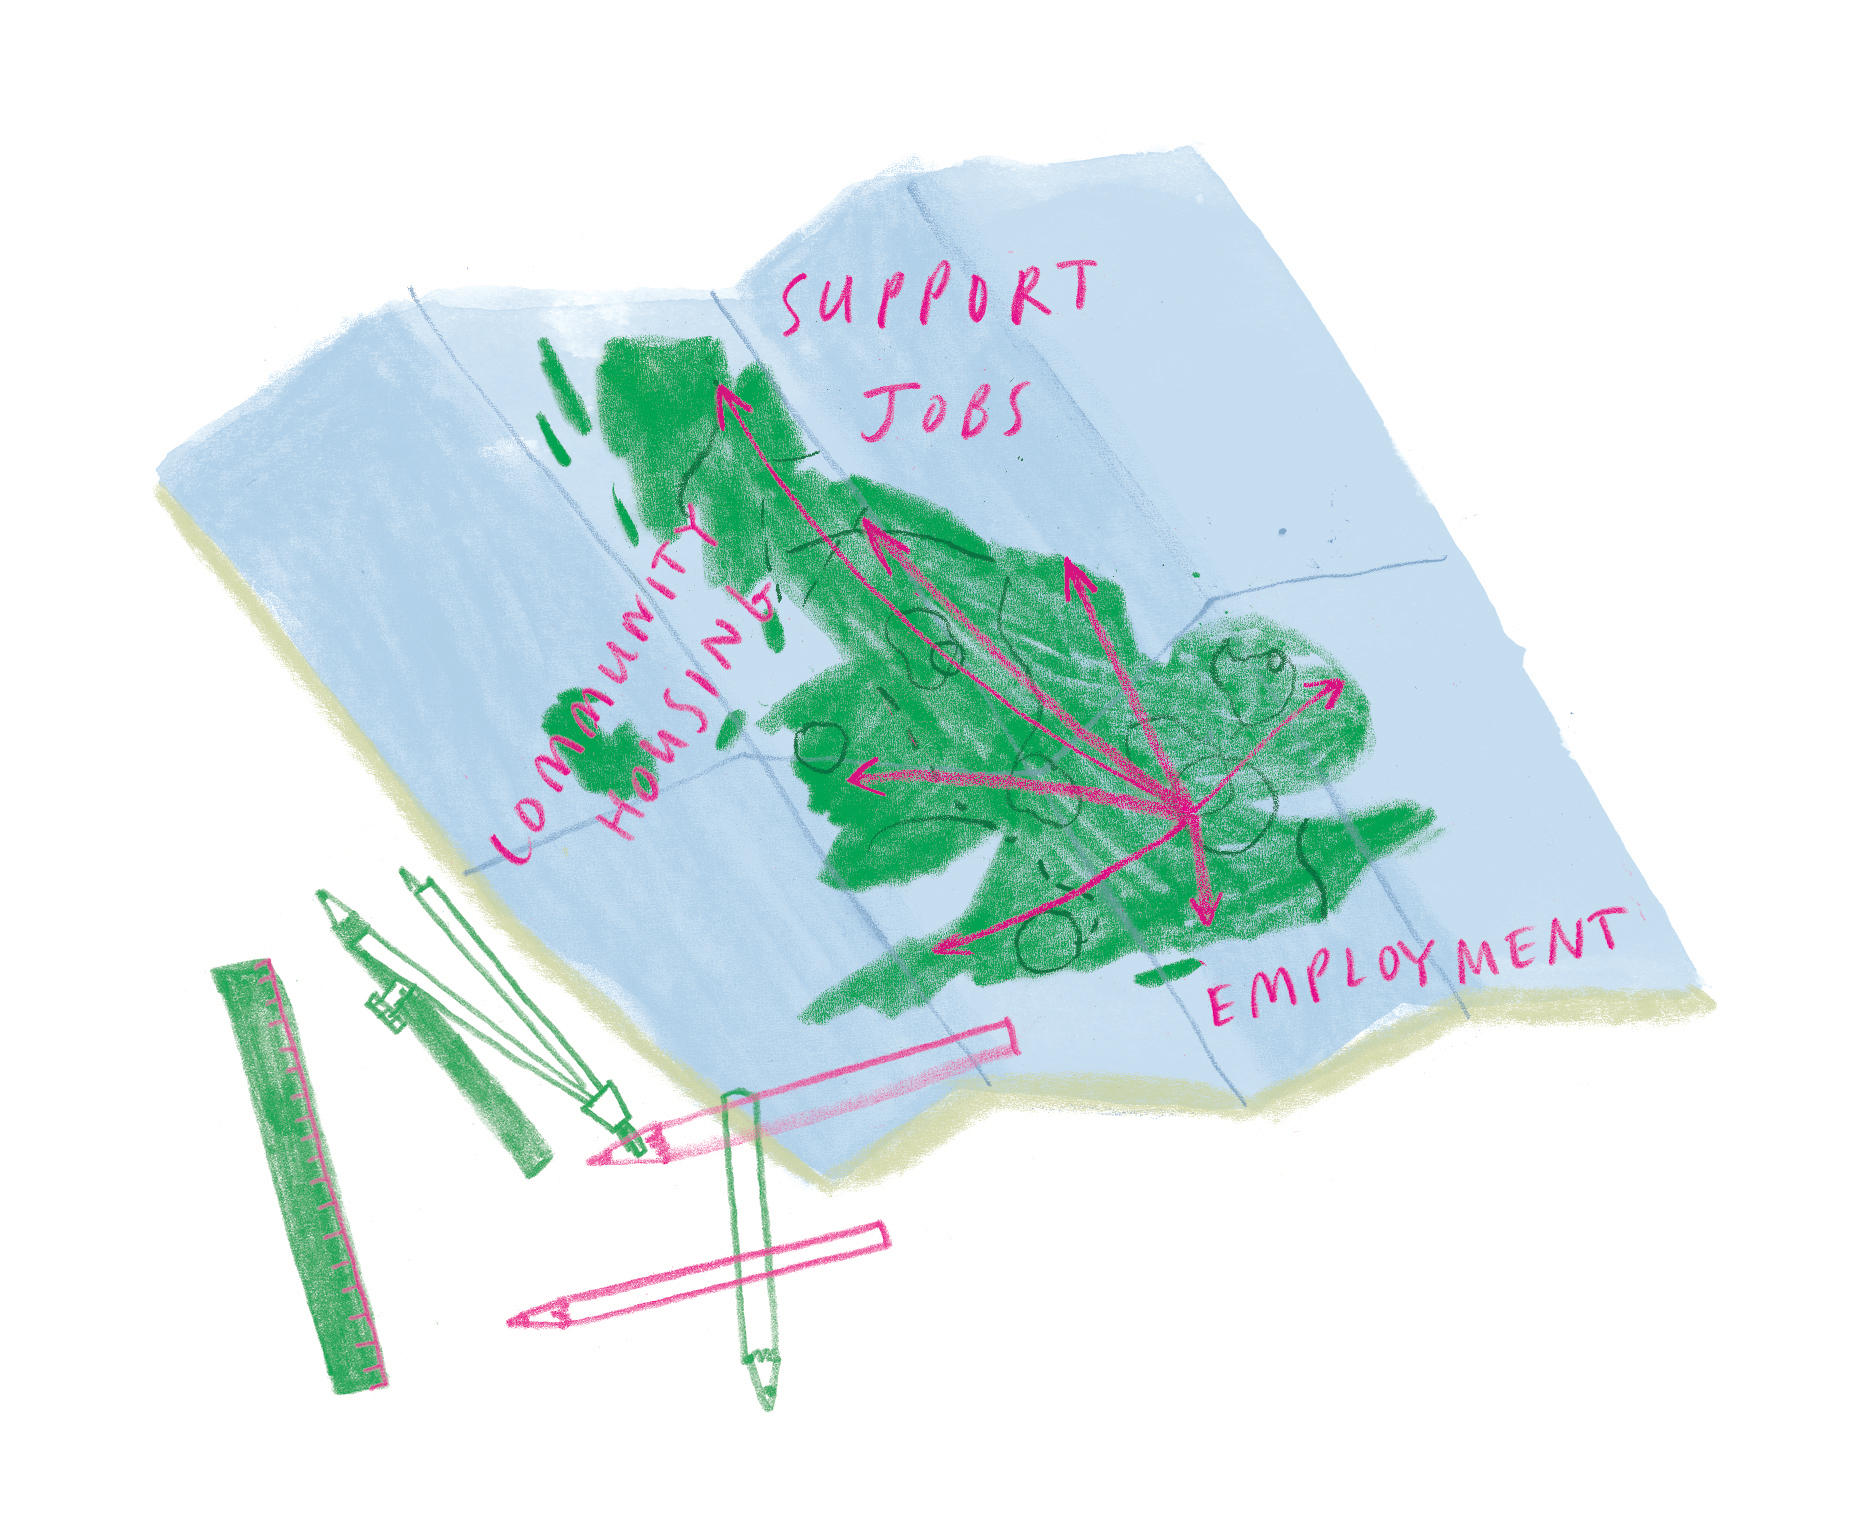 SUPPORT
JOBS
COMMUNITY
HOUSING
EMPLOYMENT